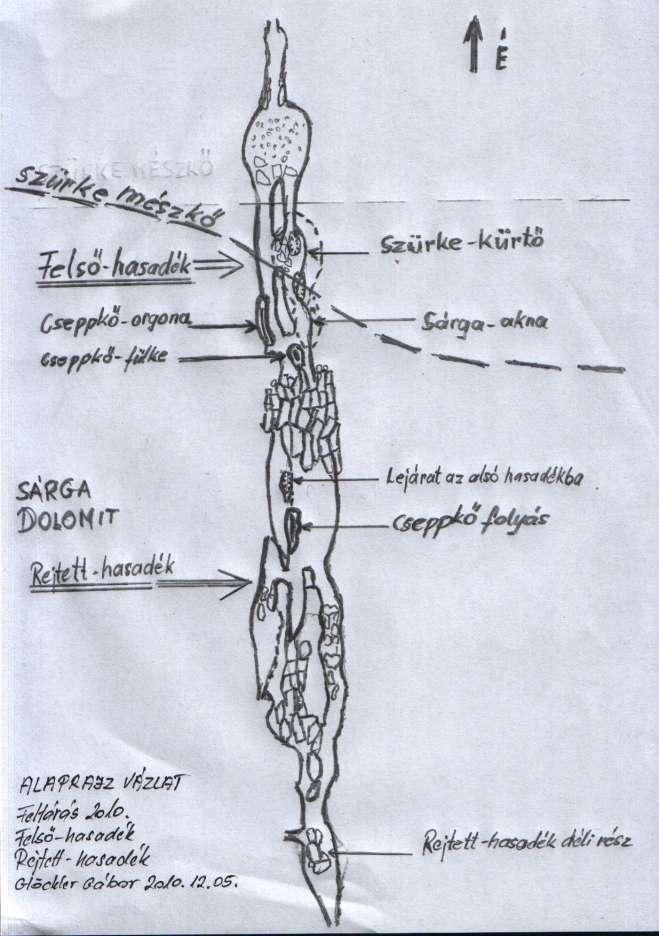 É
SZÜRKE MÉSZKŐ
Szürke mészkő
Szürke-kürtő
Felső-hasadék
Cseppkő-orgona
Sárga-akna
Cseppkő-fülke
Lejárat az alsó hasadékba
SÁRGA
DOLOMIT
Cseppkő folyás
Rejtett-hasadék
ALAPRAJZ VÁZLAT
Feltárás 2010.
Felső-hasadék
Rejtett-hasadék
Glöckler Gábor 2010.12.05.
Rejtett-hasadék déli rész